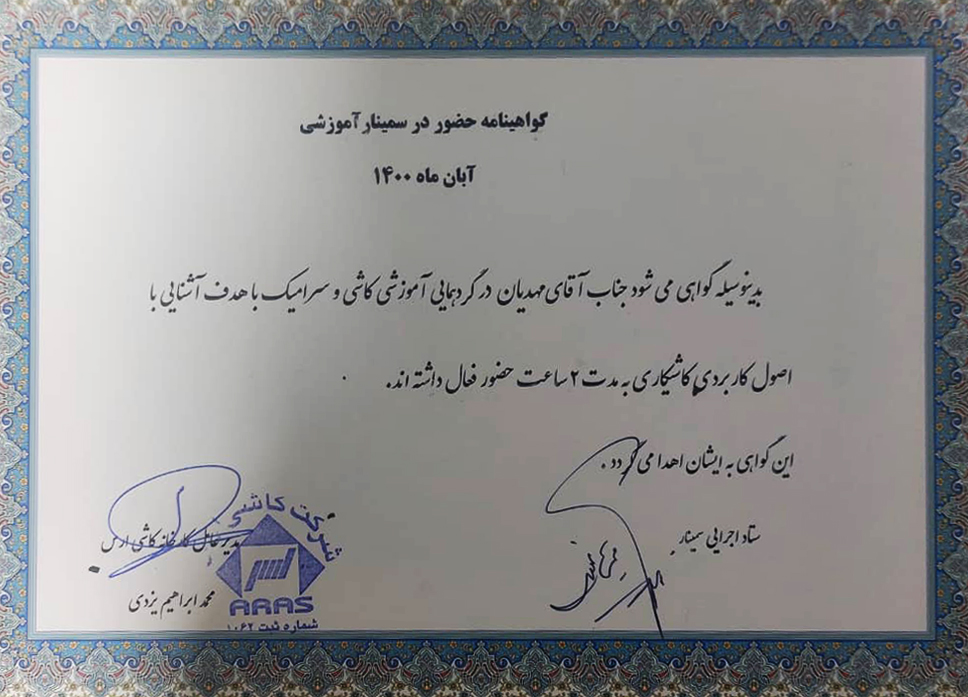 گواهینامه حضور در سمینار آموزشی
آبان ماه ۱۴۰۰
بدینوسیله گواهی می شود جناب آقای مهدیان در گردهمایی آموزشی کاشی و سرامیک با هدف آشنایی با
اصول کاربردی کاشیکاری به مدت ۲ ساعت حضور فعال داشته اند.
این گواهی به ایشان اهدا می گردد.
ستاد اجرایی سمینار
مدیر عامل کارخانه کاشی ارس
محمد ابراهیم یزدی
شرکت کاشی
ارس
ARAS
شماره ثبت ۱۰۶۲